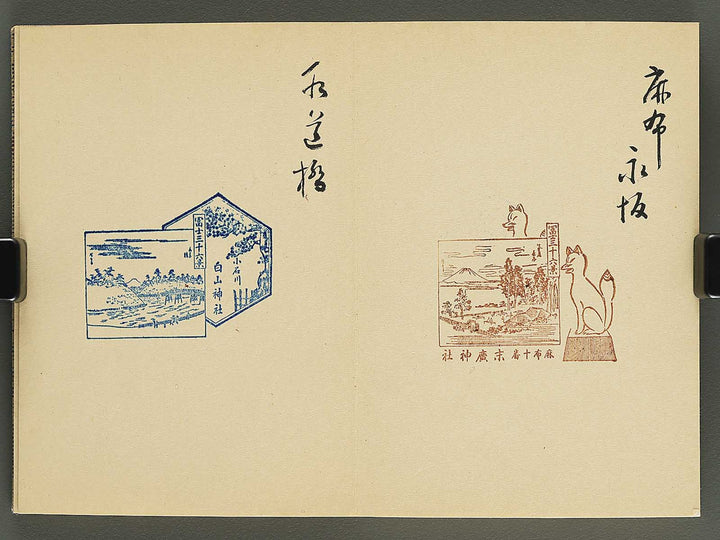 麻布 永坂
富士三十六景
麻布十番 末廣神社
水道橋
富士三十六景
小石川
白山神社